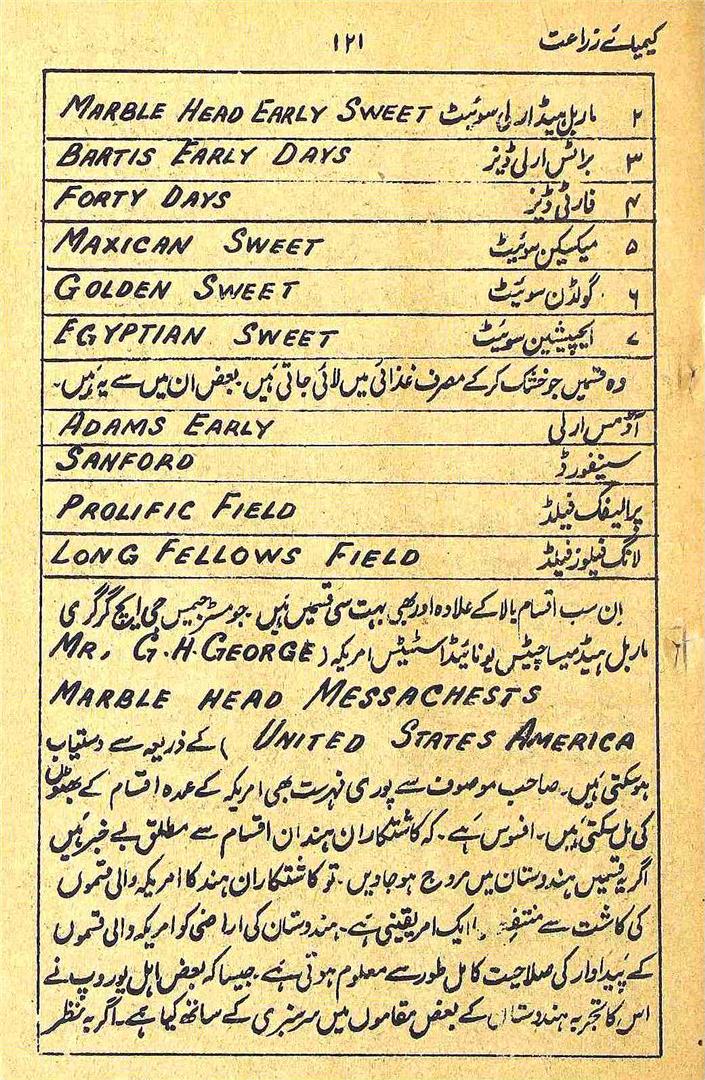 کیمیائے زراعت
۱۲۱
۲ ماربل ہیڈ ارلی سوئیٹ MARBLE HEAD EARLY SWEET
۳ براٹس ارلی ڈیز BARTIS EARLY DAYS
۴ فارٹی ڈیز FORTY DAYS
۵ میکسیکن سوئیٹ MAXICAN SWEET
۶ گولڈن سوئیٹ GOLDEN SWEET
۷ ایجپشین سوئیٹ EGYPTIAN SWEET
وہ قسمیں جو خشک کرکے مصرف غذائی میں لائی جاتی ہیں۔ بعض ان میں سے یہ ہیں۔
آڈمس ارلی ADAMS EARLY
سینفورڈ SANFORD
پرالیفک فیلڈ PROLIFIC FIELD
لانگ فیلوز فیلڈ LONG FELLOWS FIELD
اِن سب اقسام بالا کے علاوہ اور بھی بہت سی قسمیں ہیں۔ جو مسٹر جیمس جی ایچ گرگری
ماربل ہیڈ میساچیٹس یونائیڈ اسٹیٹس امریکہ (MR. G.H.GEORGE
MARBLE HEAD MESSACHESTS
UNITED STATES AMERICA) کے ذریعہ سے دستیاب
ہوسکتی ہیں۔ صاحب موصوف سے پوری فہرست بھی امریکہ کے عمدہ اقسام کے بھٹوں
کی مل سکتی ہیں۔ افسوس ہے۔ کہ کاشتکاران ہند ان اقسام سے مطلق بے خبر ہیں
اگر یہ قسمیں ہندوستان میں مروج ہوجاویں۔ تو کاشتکاران ہند کا امریکہ والی قسموں
کی کاشت سے منتفع ایک امر یقینی ہے۔ ہندوستان کی اراضی کو امریکہ والی قسموں
کے پیداوار کی صلاحیت کامل طور سے معلوم ہوتی ہے۔ جیسا کہ بعض اہل یوروپ نے
اس کا تجربہ ہندوستان کے بعض مقاموں میں سرسبزی کے ساتھ کیا ہے۔ اگر بہ نظر